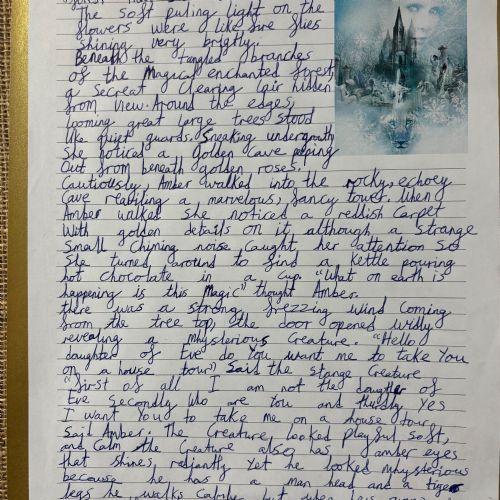 The soft puling light on the
flowers were like fire flies
shining very brightly.
Beneath the tangled branches
of the Magical enchanted forest,
a secreat clearing lair hidden
from view. Around the edges,
looming great large trees stood
like quiet guards. Sneaking undergrowth
She noticed a golden cave peeping
out from beneath golden roses.
Cautiously, Amber walked into the rocky, echoey
cave reabiling a, marvelous, fancy tower. When
Amber walked she noticed a reddish carpet
With golden details on it, although a strange
small chiming noise, caught her attention so
She turned around to find a kettle pouring
hot chocolate in a cup. "What on earth is
happening is this Magic" thought Amber.
there was a strong frezzing wind coming
from the tree top, the door opened widly
revealing a mhysterious creature. "Hello
daughter of Eve do you want me to take You
on a house tour" Said the stange creature
"first of all I am not the daughter of
Eve secondly who are You and thirdly yes
I want You to take me on a house tour
Said Amber. The Creature, looked playful, soft,
and calm the Creature also has amber eyes
that shines, radiantly yet he looked mhysterious
because he has a man head and a tiger
legs he walks but when his